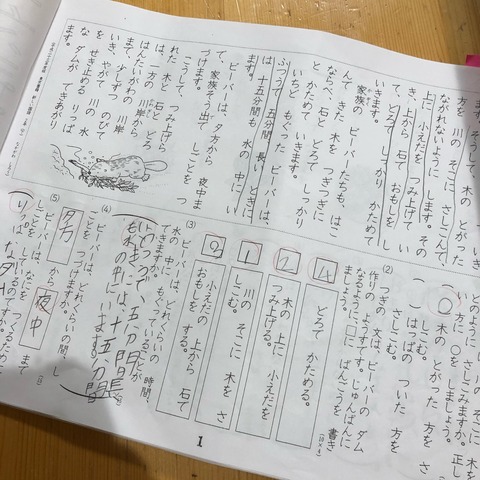 こうして、木の とがった
方を 川の そこに さしこんで、
ながれないように します。その
上に 小えだを つみ上げて い
き、上から 石で おもしを し
て、どろで しっかり かためて
いきます。
家族の ビーバーたちも、はこ
んで きた 木を つぎつぎに
ならべ、石と どろで しっかり
と かためて いきます。
ふつうで 五分間、長い ときに
は 十五分間も 水の 中に い
ます。
ビーバーは、夕方から 夜中ま
で、家族そう出で しごとを つ
づけます。
こうして、つみ上げら
れた 木と 石と どろ
は、一方の 川岸から
はんたいがわの 川岸
まで、少しずつ のびて
いき、やがて 川の 水
を せき止める りっぱ
な ダムが できあがり
ます。
い方に ○を しましょう。
○ 木の とがった 方を さ
しこむ。
( ) はっぱの ついた 方を
さしこむ。
(2) つぎの 文は、ビーバーの ダム
作りの ようすです。じゅんばんに
なるように □に ばんごうを 書き
ましょう。
4 どろで かためる。
2 木の 上に 小えだを
つみ上げる。
1 川の そこに 木を さ
しこむ。
3 小えだの 上から 石で
おもしを する。
(3) ビーバーは、どれくらいの 時間、
水の 中に もぐっている ことが
できますか。
ふつうで、五分間
も水の中には、十五、分間
(4) ビーバーは、どれくらいの 間、し
ごとを つづけますか。
夕方 から 夜中 まで
(5) ビーバーは、なにを つくる
しごとを しているのですか。
りっぱなダム
1